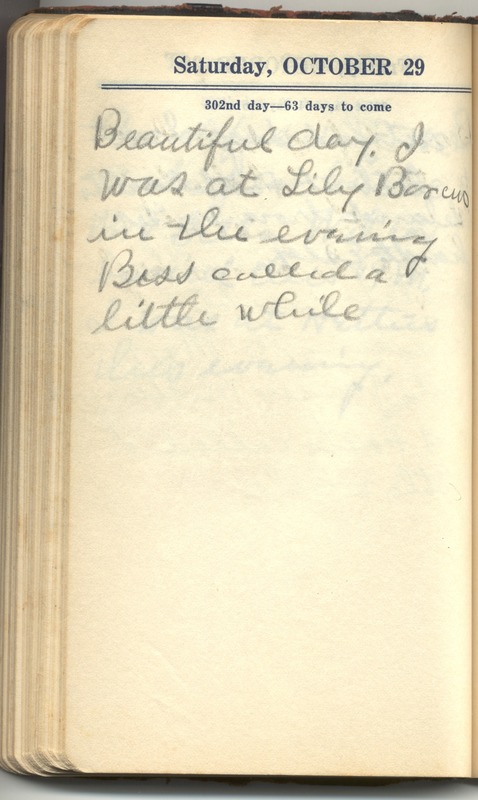 Saturday, OCTOBER 29
302nd day—63 days to come
Beautiful day. I
was at Lily
in the evening
Bess called a
little while